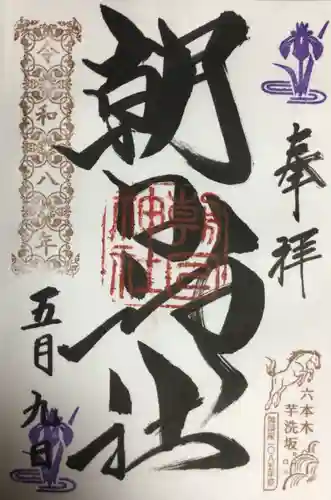 奉拝
六本木
芋洗坂
朝日神社
朝日神社
令和八年
五月九日